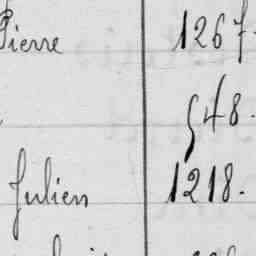 Pierre 1267.
548.
Julien 1218.